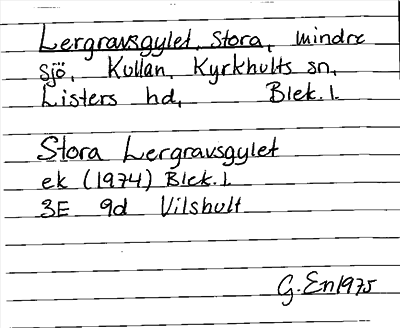 Lergravsgylet, Stora, mindre
sjö, Kullan, Kyrkhults sn,
Listers hd, Blek. l.
Stora Lergravsgylet
ek (1974) Blek. l.
3E 9d Vilshult
G. En 1975